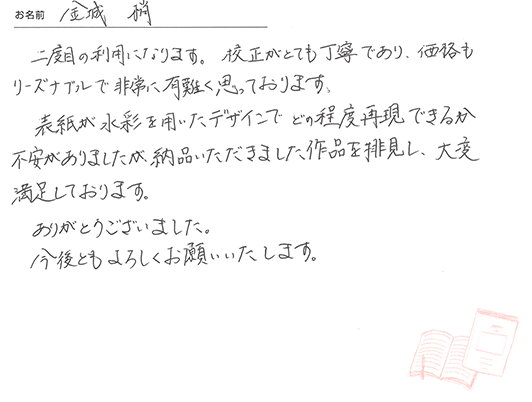 お名前 金城 梢
二度目の利用になります。校正がとても丁寧であり、価格も
リーズナブルで非常に有難く思っております。
表紙が水彩を用いたデザインでどの程度再現できるか
不安がありましたが納品いただきました作品を拝見し、大変
満足しております。
ありがとうございました。
今後ともよろしくお願いいたします。